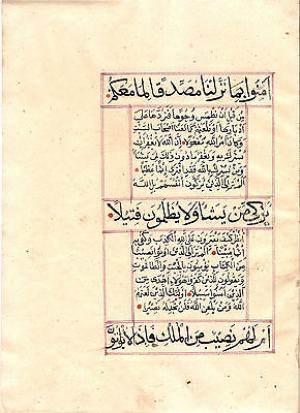 اٰمنوا بما نزلنا مصدقا لما معكم
من قبل ان نطمس وجوها فنردها على
ادبارها او نلعنهم كما لعنا اصحاب السبت
وكان امر الله مفعولا ان الله لا يغفر ان
يشرك به ويغفر ما دون ذلك لمن يشاء
ومن يشرك بالله فقد افترى اثما عظيما
الم تر الى الذين يزكون انفسهم بل الله
يزكى من يشاء ولا يظلمون فتيلا
انظر كيف يفترون على الله الكذب وكفى به
اثما مبينا الم تر الى الذين اوتوا نصيبا
من الكتاب يؤمنون بالجبت والطاغوت
ويقولون للذين كفروا هؤلاء اهدى من
الذين امنوا سبيلا اولئك الذين لعنهم
الله ومن يلعن الله فلن تجد له نصيرا
ام لهم نصيب من الملك فاذا لا يؤتون